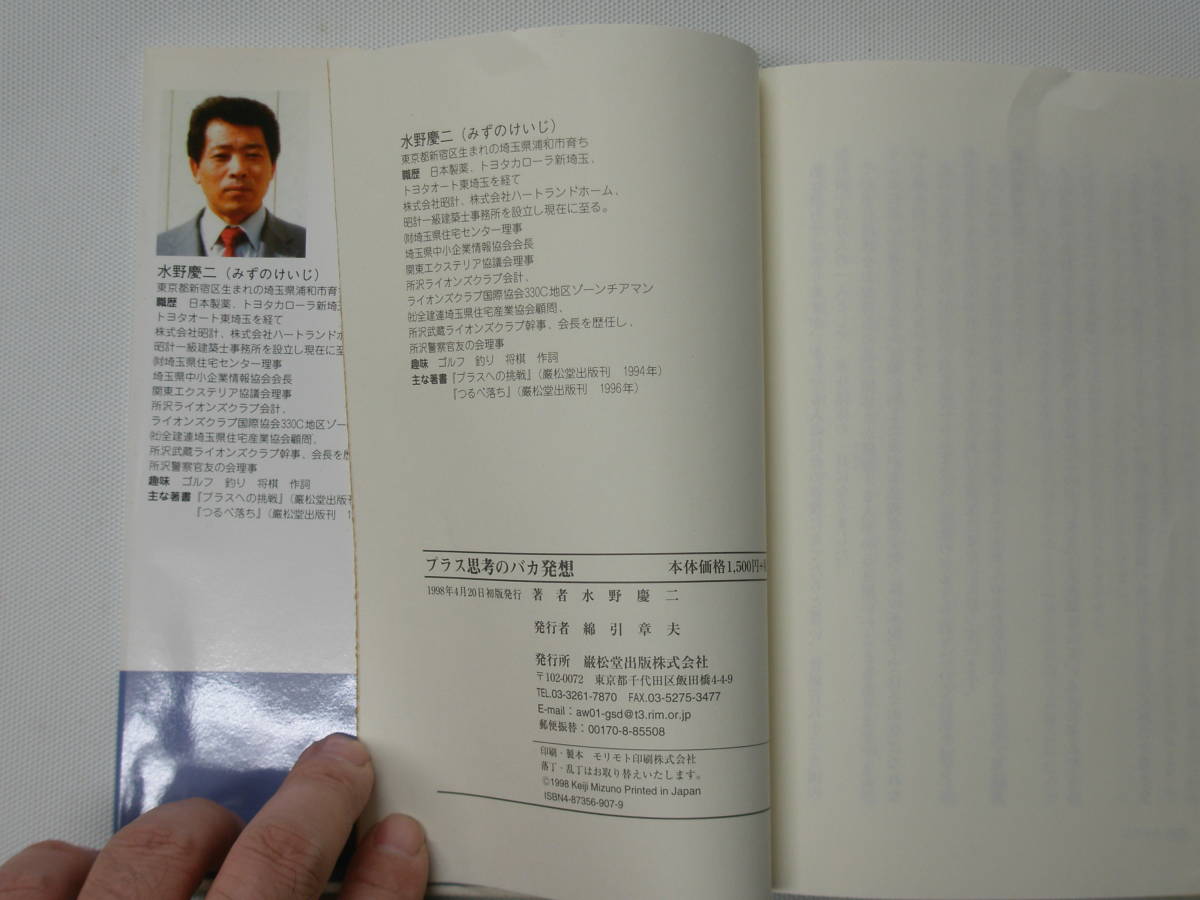 水野慶二(みずのけいじ)
東京都新宿区生まれの埼玉県浦和市育ち
職歴 日本製薬、トヨタカローラ新埼玉、
トヨタオート東埼玉を経て
株式会社昭計、株式会社ハートランドホ
昭計一級建築士事務所を設立し現在に至
㈶埼玉県住宅センター理事
埼玉県中小企業情報協会会長
関東エクステリア協議会理事
所沢ライオンズクラブ会計、
ライオンズクラブ国際協会330C地区ゾー
㈳全建連埼玉県住宅産業協会顧問、
所沢武蔵ライオンズクラブ幹事、会長を
所沢警察官友の会理事
趣味 ゴルフ 釣り 将棋 作詞
主な著書『プラスへの挑戦』(巌松堂出版
『つるべ落ち』(巌松堂出版刊
水野慶二(みずのけいじ)
東京都新宿区生まれの埼玉県浦和市育ち
職歴 日本製薬、トヨタカローラ新埼玉、
トヨタオート東埼玉を経て
株式会社昭計、株式会社ハートランドホーム、
昭計一級建築士事務所を設立し現在に至る。
㈶埼玉県住宅センター理事
埼玉県中小企業情報協会会長
関東エクステリア協議会理事
所沢ライオンズクラブ会計、
ライオンズクラブ国際協会330C地区ゾーンチアマン
㈳全建連埼玉県住宅産業協会顧問、
所沢武蔵ライオンズクラブ幹事、会長を歴任し、
所沢警察官友の会理事
趣味 ゴルフ 釣り 将棋 作詞
主な著書『プラスへの挑戦』(巌松堂出版刊 1994年)
『つるべ落ち』(巌松堂出版刊 1996年)
プラス思考のバカ発想 本体価格1,500円+
1998年4月20日初版発行 著者 水野慶二
発行者 綿引章夫
発行所 巌松堂出版株式会社
〒102-0072 東京都千代田区飯田橋4-4-9
TEL.03-3261-7870 FAX.03-5275-3477
E-mail:aw01-gsd@t3.rim.or.jp
郵便振替:00170-8-85508
印刷・製本 モリモト印刷株式会社
落丁・乱丁はお取り替えいたします。
©1998 Keiji Mizuno Printed in Japan
ISBN4-87356-907-9